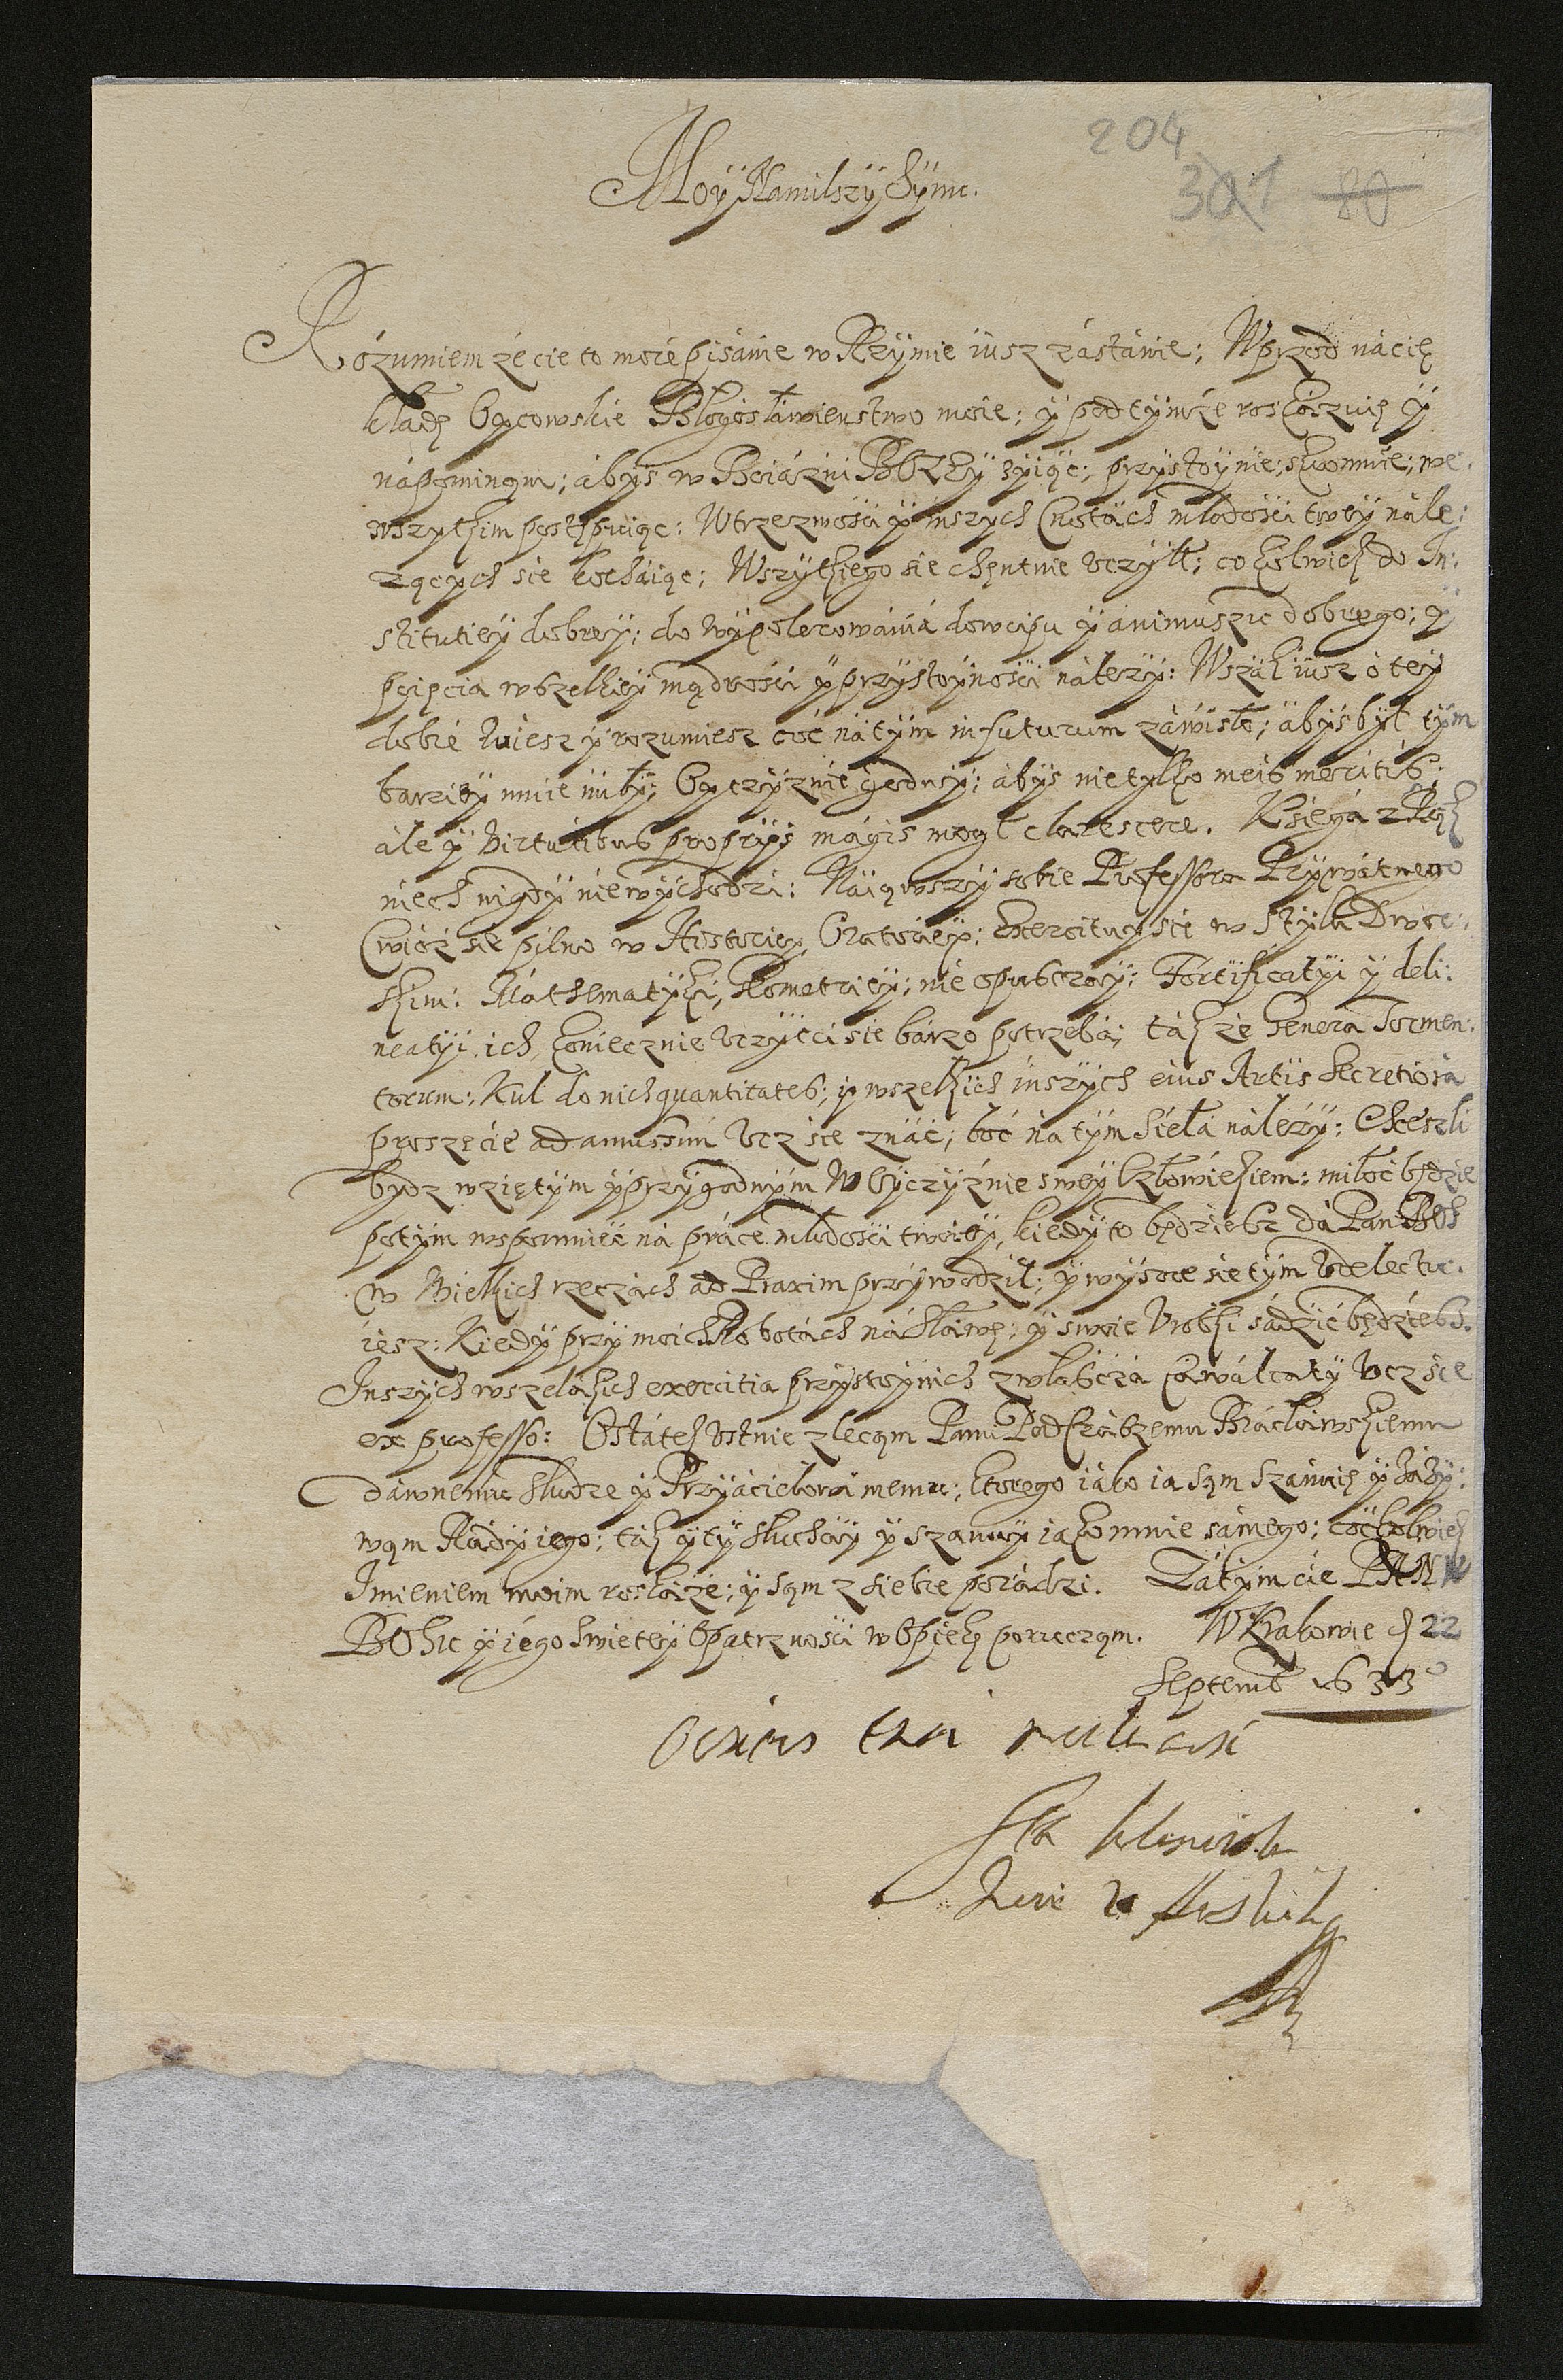 204
301 80
Moy Namilszy Synu.
Rozumiem że cie to moie pisánie w Rzymie iusz zástánie; Wprzod ná cię
kładę Oycowskie Błogosłáwienstwo moie; y pod tymże roskázuię y
nápominąm; ábyś w Boiázni BOZEY żyiąc; przystoynie, skromnie; we
wszytkim postępuiąc: W trzezwości y inszych Cnotách młodości twey nále:
zących sie kocháiąc; Wszytkiego sie chęntnie uczył; co kolwiek do In:
stitutiey dobrey; do wypolerowánia dowcipu y ánimuszu dobrego; y
poięcia wszelkiey mądrości y przystoyności należy: Wszák iusz o tey
dobie wiesz y rozumiesz coć ná tym in futurum záwisło; ábyś był tym
barziey mnie miły; Oyczyznie godny; ábyś nie tylko meis meritis;
ále y virtutibus proprys mágis mogł clarescere. Księgá z Rąk
niech nigdy nie wychodzi: Náiąwszy sobie Professora Prywátnego
Cwicz sie pilno w Historiey, Oratoriey; Exercituy sie w stylu Dwor:
skim: Máthematyki, Geometriey; nie opusczay; Fortificatyi y deli:
neatyi, ich, koniecznie uczyć ci sie bárzo potrzebá; ták że Genera Tormen:
torum; Kul do nich quantitates; y wszelkich inszych eius Artis secretiora
proszę cie ad amussim ucz sie znáć; boć ná tym siełá náleży: Chceszli
bydz wziętym y przygodnym W Oyczyznie swey Człowiekiem: miłoć będzie
potym wspomnieć ná práce młodości twoiey, kiedy to będziesz da Pan BOG
w Wielkich rzeczách ad Praxim przywodził; y wysoce sie tym udelectu:
iesz: Kiedy przy moich Robotách ná Sławę; y swoie Vrobki sádzić będziesz.
Inszych wszelákich exercitia przystoynich zwłásczá Cawálcaty ucz sie
ex professo: Ostátek ustnie zlecąm Panu Podczászemu Brácłáwskiemu
dáwnemu słudze y Przyacielowi memu; ktorego iáko ia sąm szánuię y záży:
wąm Rády iego; ták y ty słucháy y szanuy iáko mnie sámego; coćkolwiek
Imieniem moim roskáże; y sąm z siebie poradzi. Zátym cie PANU
BOGU y iego swietey Opatrznosci w Opiekę porucząm. W Krakowie d 22
Septemb 1633